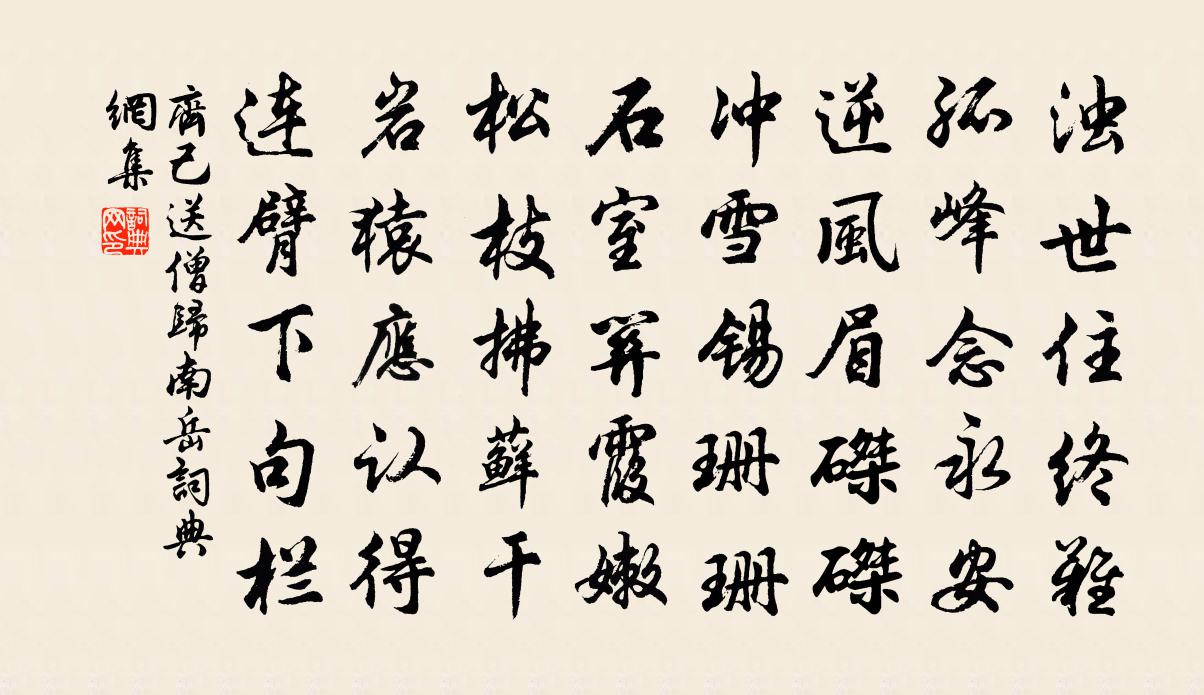 浊世住终难
孤峰念永安
逆風眉磔磔
冲雪锡珊珊
石室開霞嫩
松枝拂蘚干
岩猿應认得
连臂下句栏
齊己送僧歸南岳詞典
網集
詞典网印